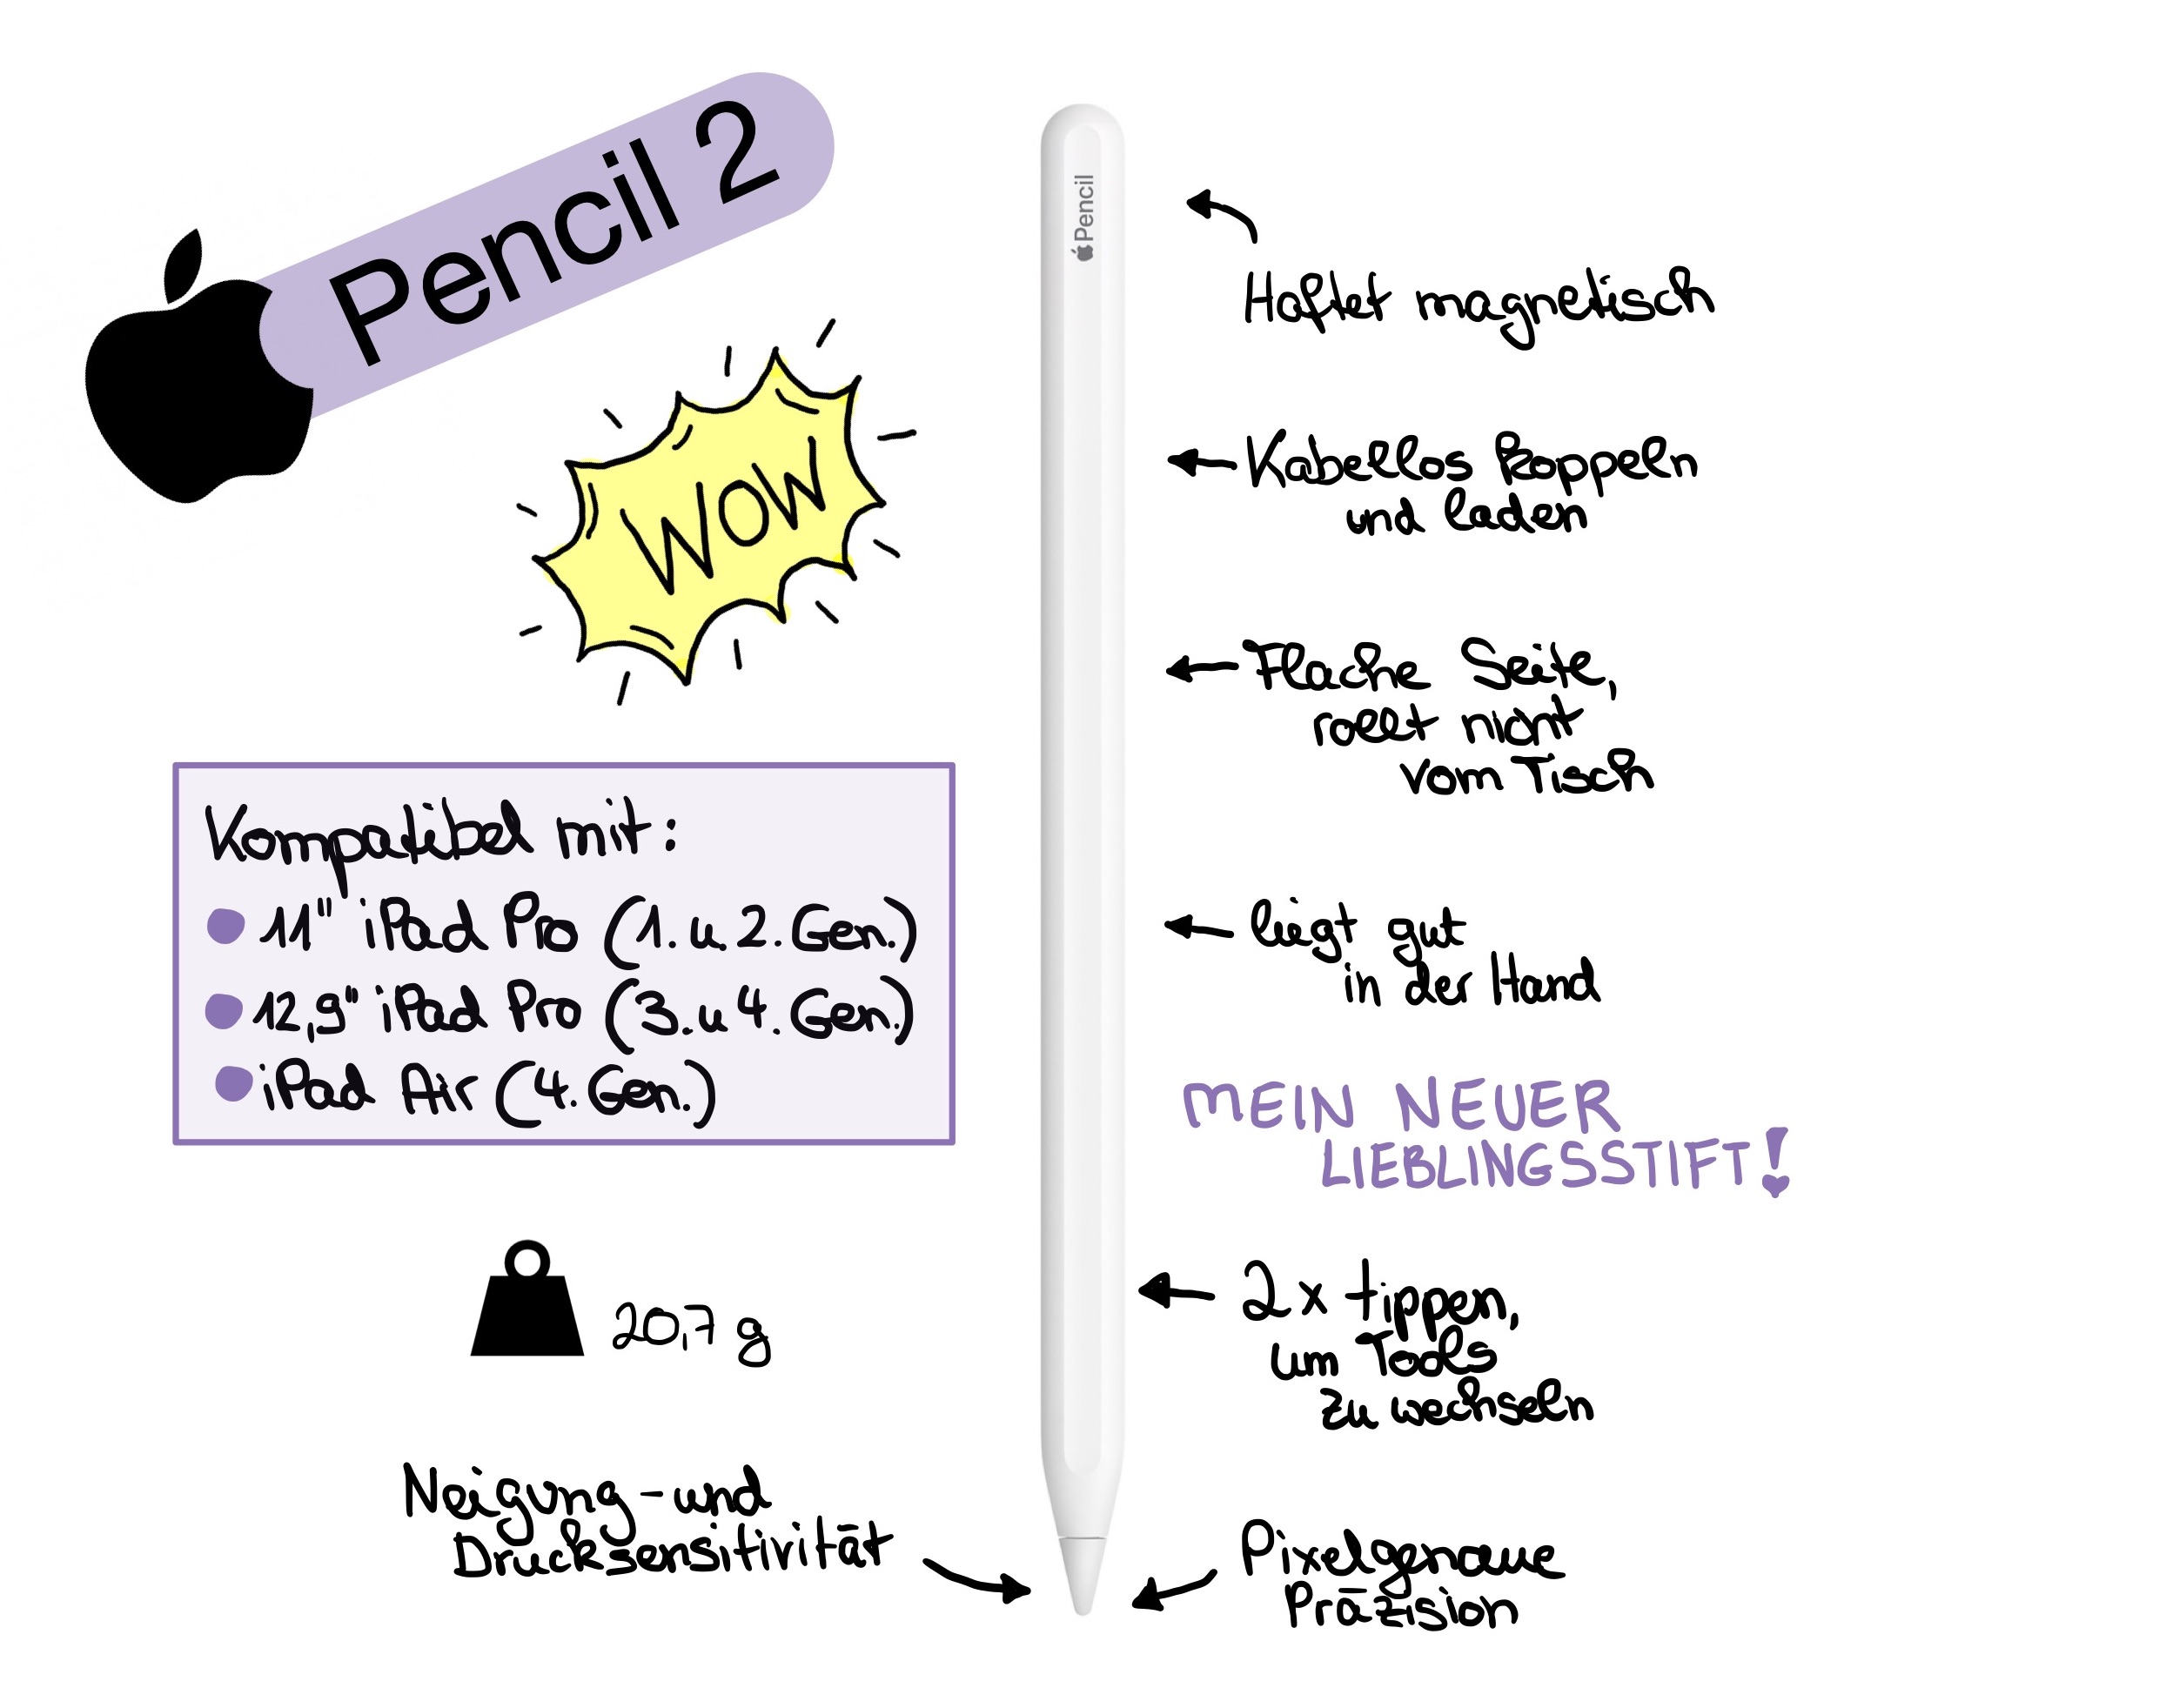 Pencil 2
WOW
Pencil
Haftet magnetisch
Kabellos koppeln
und laden
Flache Seite,
rollt nicht
vom Tisch
liegt gut
in der Hand
MEIN NEUER
LIEBLINGSSTIFT!
2x tippen,
um Tools
zu wechseln
Pixelgenaue
Präzision
Kompatibel mit:
11" iPad Pro (1. u. 2. Gen.)
12,9" iPad Pro (3. u 4. Gen.)
iPad Air (4. Gen.)
20,7 g
Neigung - und
Drucksensitivität